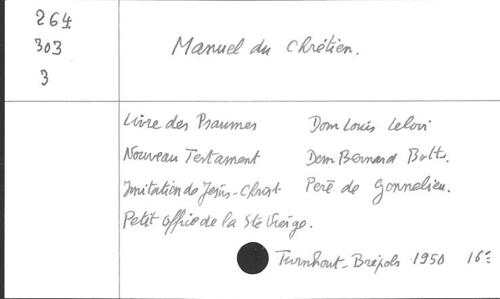 264
303
3
Manuel du Chrétien.
Livre des Psaumes Dom Louis Leloir
Nouveau Testament Dom Bernard Botte.
Imitation de Jésus-Christ Père de Gonnelieu.
Petit Office de la Ste Vierge.
Turnhout-Brépols 1950 16º